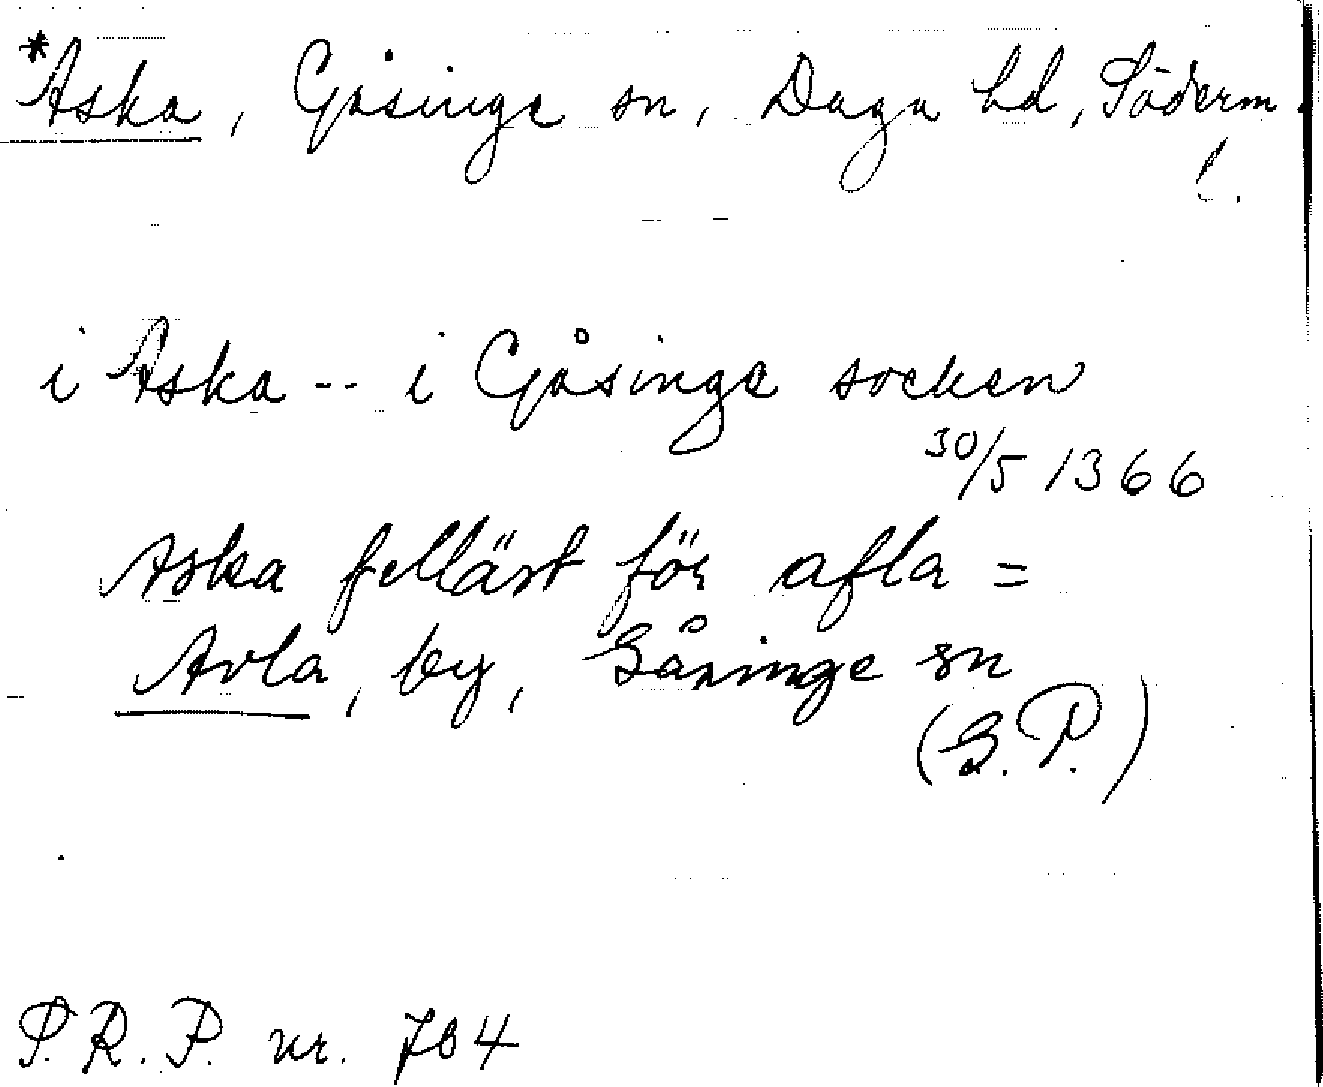 *Aska, Gåsinge sn, Daga hd, Söderm.
l.
i Aska -- i Gåsinge socken
30/5 1366
Aska felläst för afla =
Avla, by, Gåsinge sn
(G. P.)
P. R. P. nr. 704